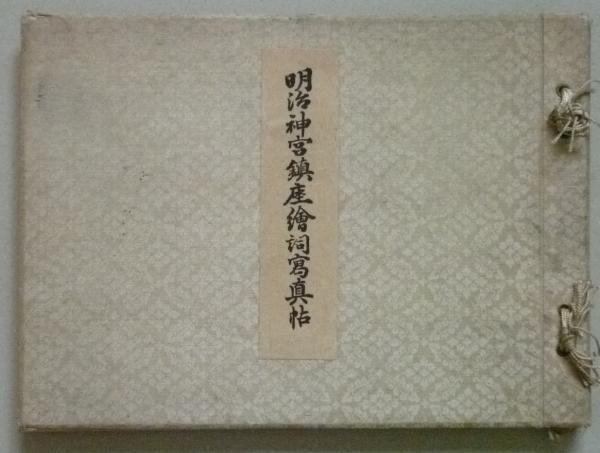 明治神宮鎮座繪詞寫真帖